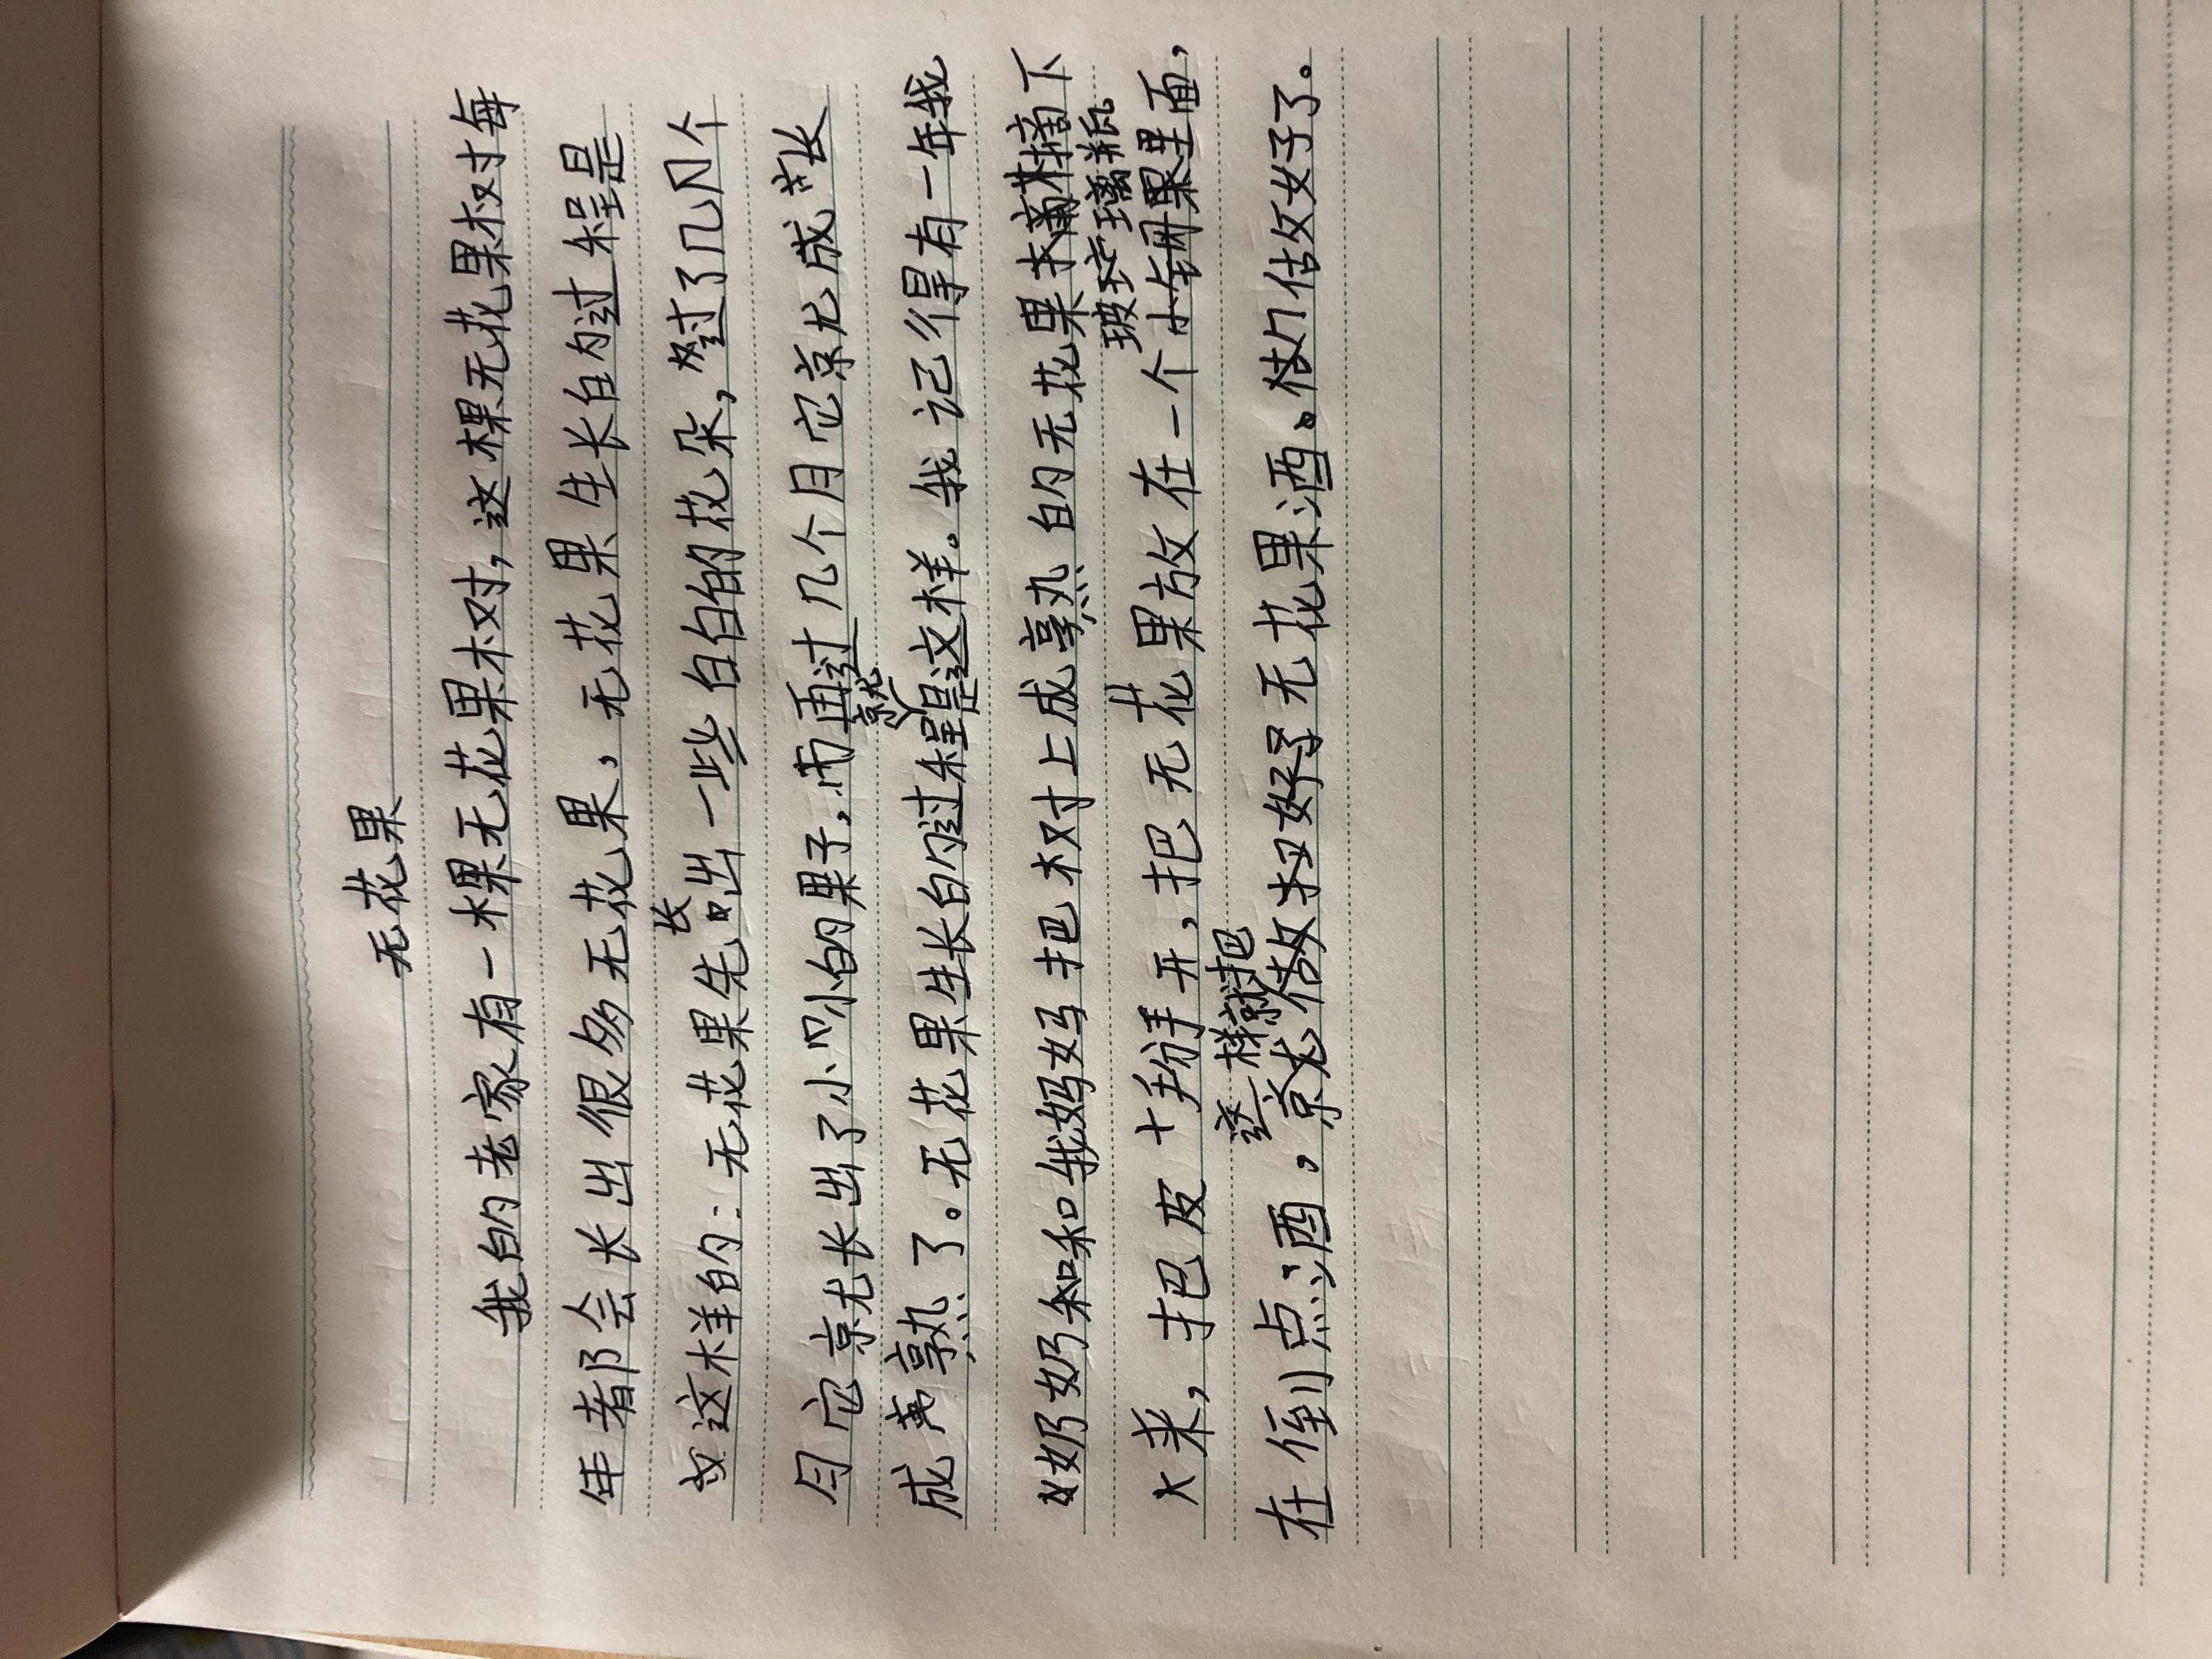 无花果
我的老家有一棵无花果树,这棵无花果树每
年都会长出很多无花果,无花果生长的过程是
这样的:无花果先长出一些白白的花朵,过了几个
月它就长出了小小的果子,而再过几个月它就成长
成熟了。无花果生长的过程就是这样。我记得有一年我
奶奶和我妈妈把树上成熟的无花果摘下
来,把皮扮开,把无花果放在一个玻璃瓶里面,
在倒点酒,这样就把无花果酒做好了。